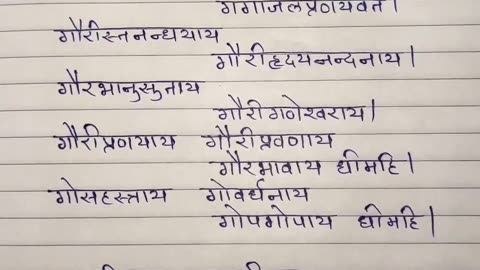 गंगाजलप्रणयवते।
गौरीस्तनन्धयाय
गौरीहृदयनन्दनाय।
गौरभानुसुताय
गौरीगणेश्वराय।
गौरीप्रणयाय गौरीप्रवणाय
गौरभावाय धीमहि।
गोसहस्त्राय गोवर्धनाय
गोपगोपाय धीमहि।